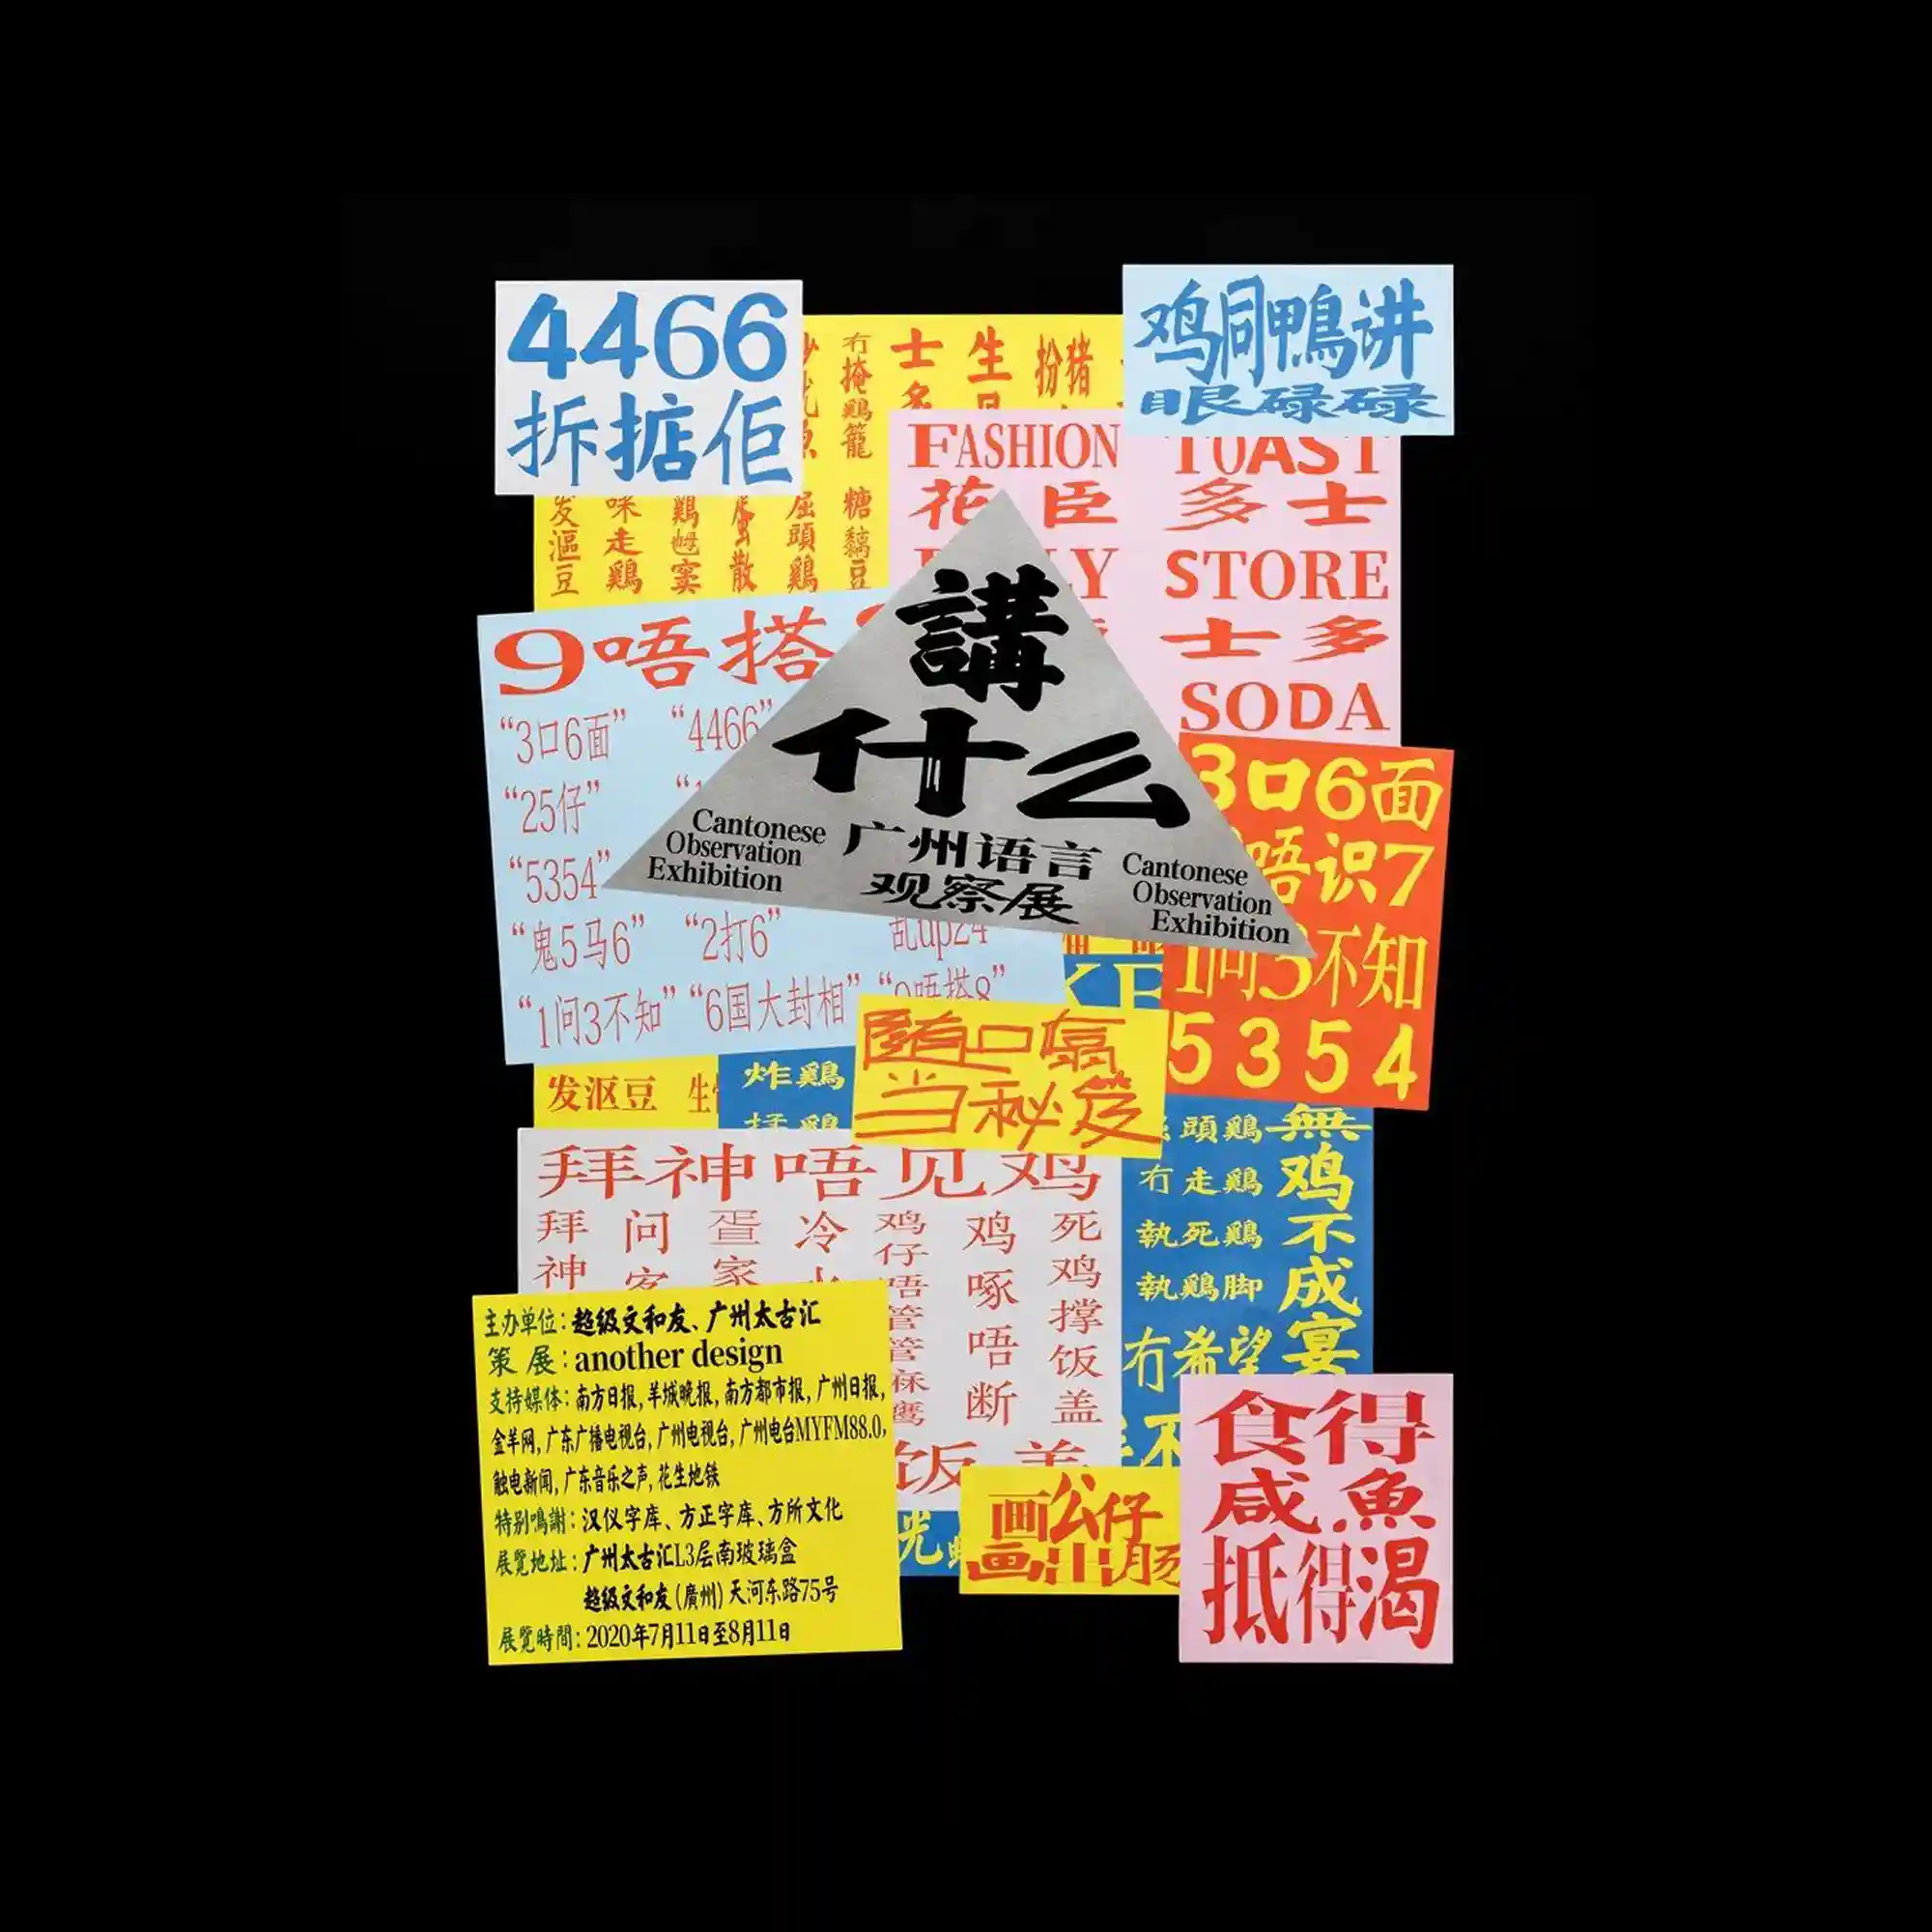 4466
拆掂佢
鸡同鴨讲
眼碌碌
冇掩鷄籠
士多
生
扮猪
FASHION
花臣
TOAST
多士
STORE
士多
SODA
发漚豆
味走鷄
鷄乸窦
散
屈頭鷄
糖黐豆
9唔搭
“3口6面” “4466”
“25仔”
“5354”
“鬼5马6” “2打6” 乱up24
“1问3不知” “6国大封相” “9唔搭8”
講
什么
广州语言
观察展
Cantonese
Observation
Exhibition
Cantonese
Observation
Exhibition
3口6面
唔识7
1问3不知
5354
随口噏
当秘笈
发沤豆
炸鷄
拜神唔见鸡
拜神
问
蛋家
冷
鸡仔唔管管麻鹰
鸡啄唔断
死鸡撑饭盖
饭盖
頭鷄
冇走鷄
執死鷄
執鷄脚
冇希望
無鸡不成宴
主办单位：超级文和友、广州太古汇
策展：another design
支持媒体：南方日报，羊城晚报，南方都市报，广州日报，
金羊网，广东广播电视台，广州电视台，广州电台MYFM88.0，
触电新闻，广东音乐之声，花生地铁
特别鳴謝：汉仪字库、方正字库、方所文化
展覽地址：广州太古汇L3层南玻璃盒
超级文和友（廣州）天河东路75号
展覽時間：2020年7月11日至8月11日
画公仔
画出肠
食得
咸魚
抵得渴